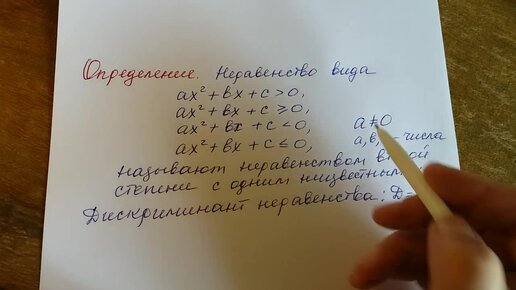 Определение. Неравенство вида
ax² + bx + c > 0,
ax² + bx + c ≥ 0,
ax² + bx + c < 0,
ax² + bx + c ≤ 0,
a ≠ 0
a, b, - числа
называют неравенством второй
степени с одним неизвестным
Дискриминант неравенства: D=